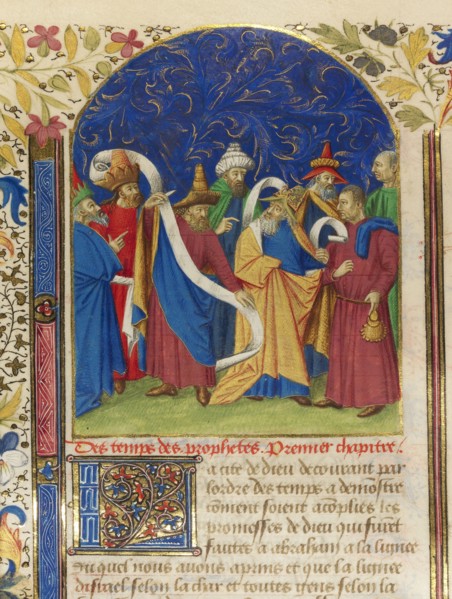 Des temps des prophetes. Premier chapitre.
La cite de dieu decourant par
lordre des temps a demostre
coment soient acoplies les
promesses de dieu qui furet
faictes a abraham a la lignee
du quel nous auons aprins et que la lignee
disrael selon la char et toutes gens selon la